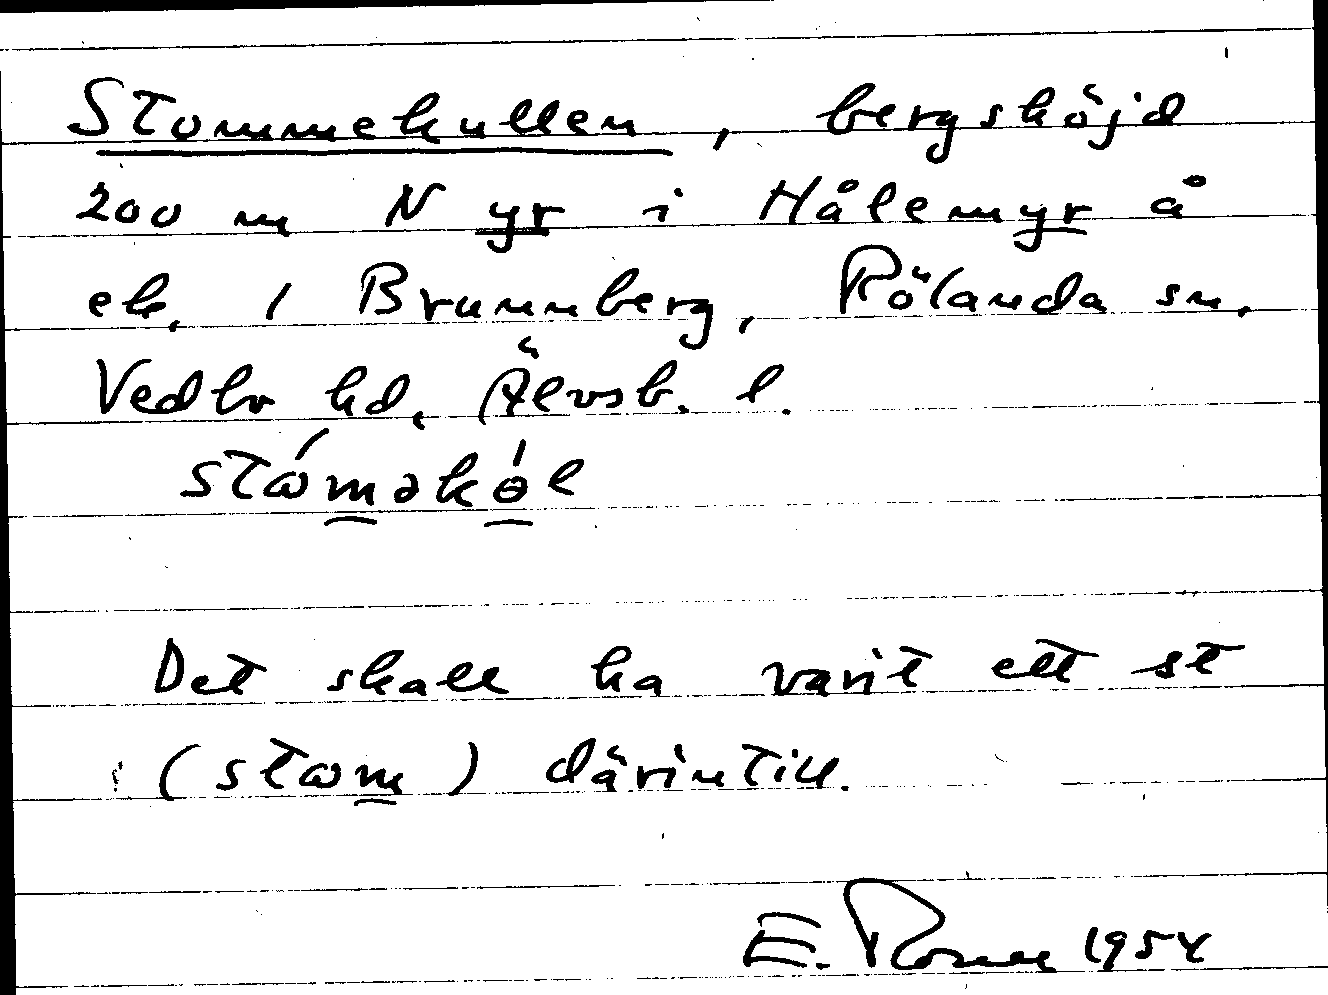 Stommekullen, bergshöjd
200 m N yr i Hålemyr å
ek. 1 Brunnberg, Rölanda sn,
Vedbo hd, Älvsb. l.
Det skall ha varit ett st
(stωm) därintill.
E. 1954